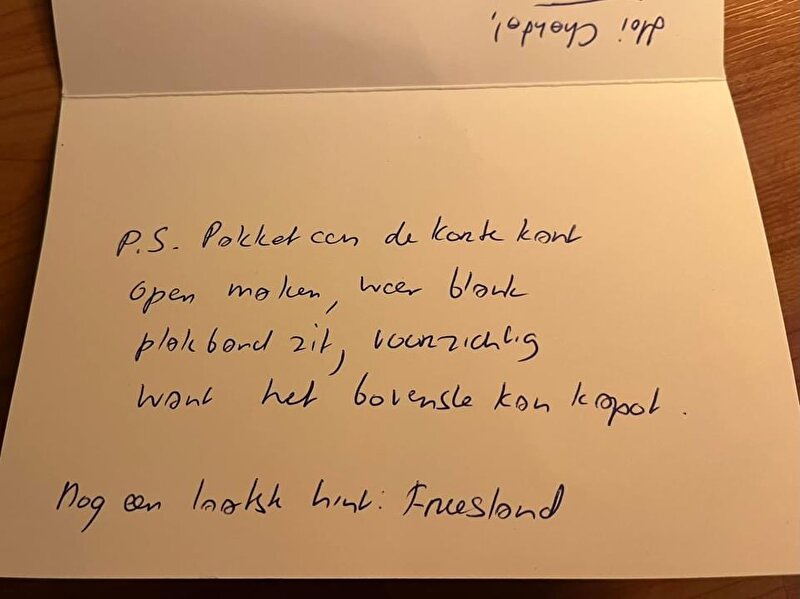 Hoi Chandal,
P.S. Pakket aan de korte kant
open maken, waar blank
plakband zit, voorzichtig
want het bovenste kan kapot.
Nog een laatste hint: Friesland